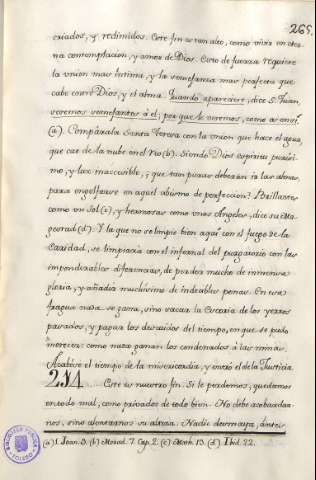 265.
criados, y redimidos. Este fin es tan alto, como vivir en eter-
na contemplacion, y amor de Dios. Esto de fuerza requiere
la union mas íntima, y la semejanza mas perfecta que
cabe entre Dios, y el alma. Quando apareciere, dice S. Juan,
seremos semejantes à él, porque le veremos, como es en sí
(a). Compárala Santa Teresa con la union que hace el agua,
que cae de la nube en el rio (b). Siendo Dios espíritu purísi-
mo, y luz inaccesible, ¿que tan puras deberán ir las almas,
para engolfarse en aquel abismo de perfeccion? Brillantes
como un Sol (c), y hermosas como unos Angeles, dice su Ma-
gestad (d). Y la que no se limpie bien aquí con el fuego de la
Caridad, se limpiará con el infernal del purgatorio con las
imponderables diferencias, de perder mucho de inmensa
gloria, y añadir muchísimo de indecibles penas. En esa
fragua nada se gana, sino sacar la escoria de los yerros
pasados, y pagar los descuidos del tiempo, en que se pudo
merecer; como nada ganan los condenados à las minas.
Acabóse el tiempo de la misericordia, y entró el de la Justicia.
284. Este es nuestro fin. Si le perdemos, quedamos
en todo mal, como privados de todo bien. No debe acobardar-
nos, sino alentarnos su alteza. Nadie desmaya, ántes
(a) 1. Joan. 3. (b) Morad. 7. Cap. 2. (c) Math. 13. (d) Ibid. 22.
BIBLIOTECA PUBLICA
TOLEDO